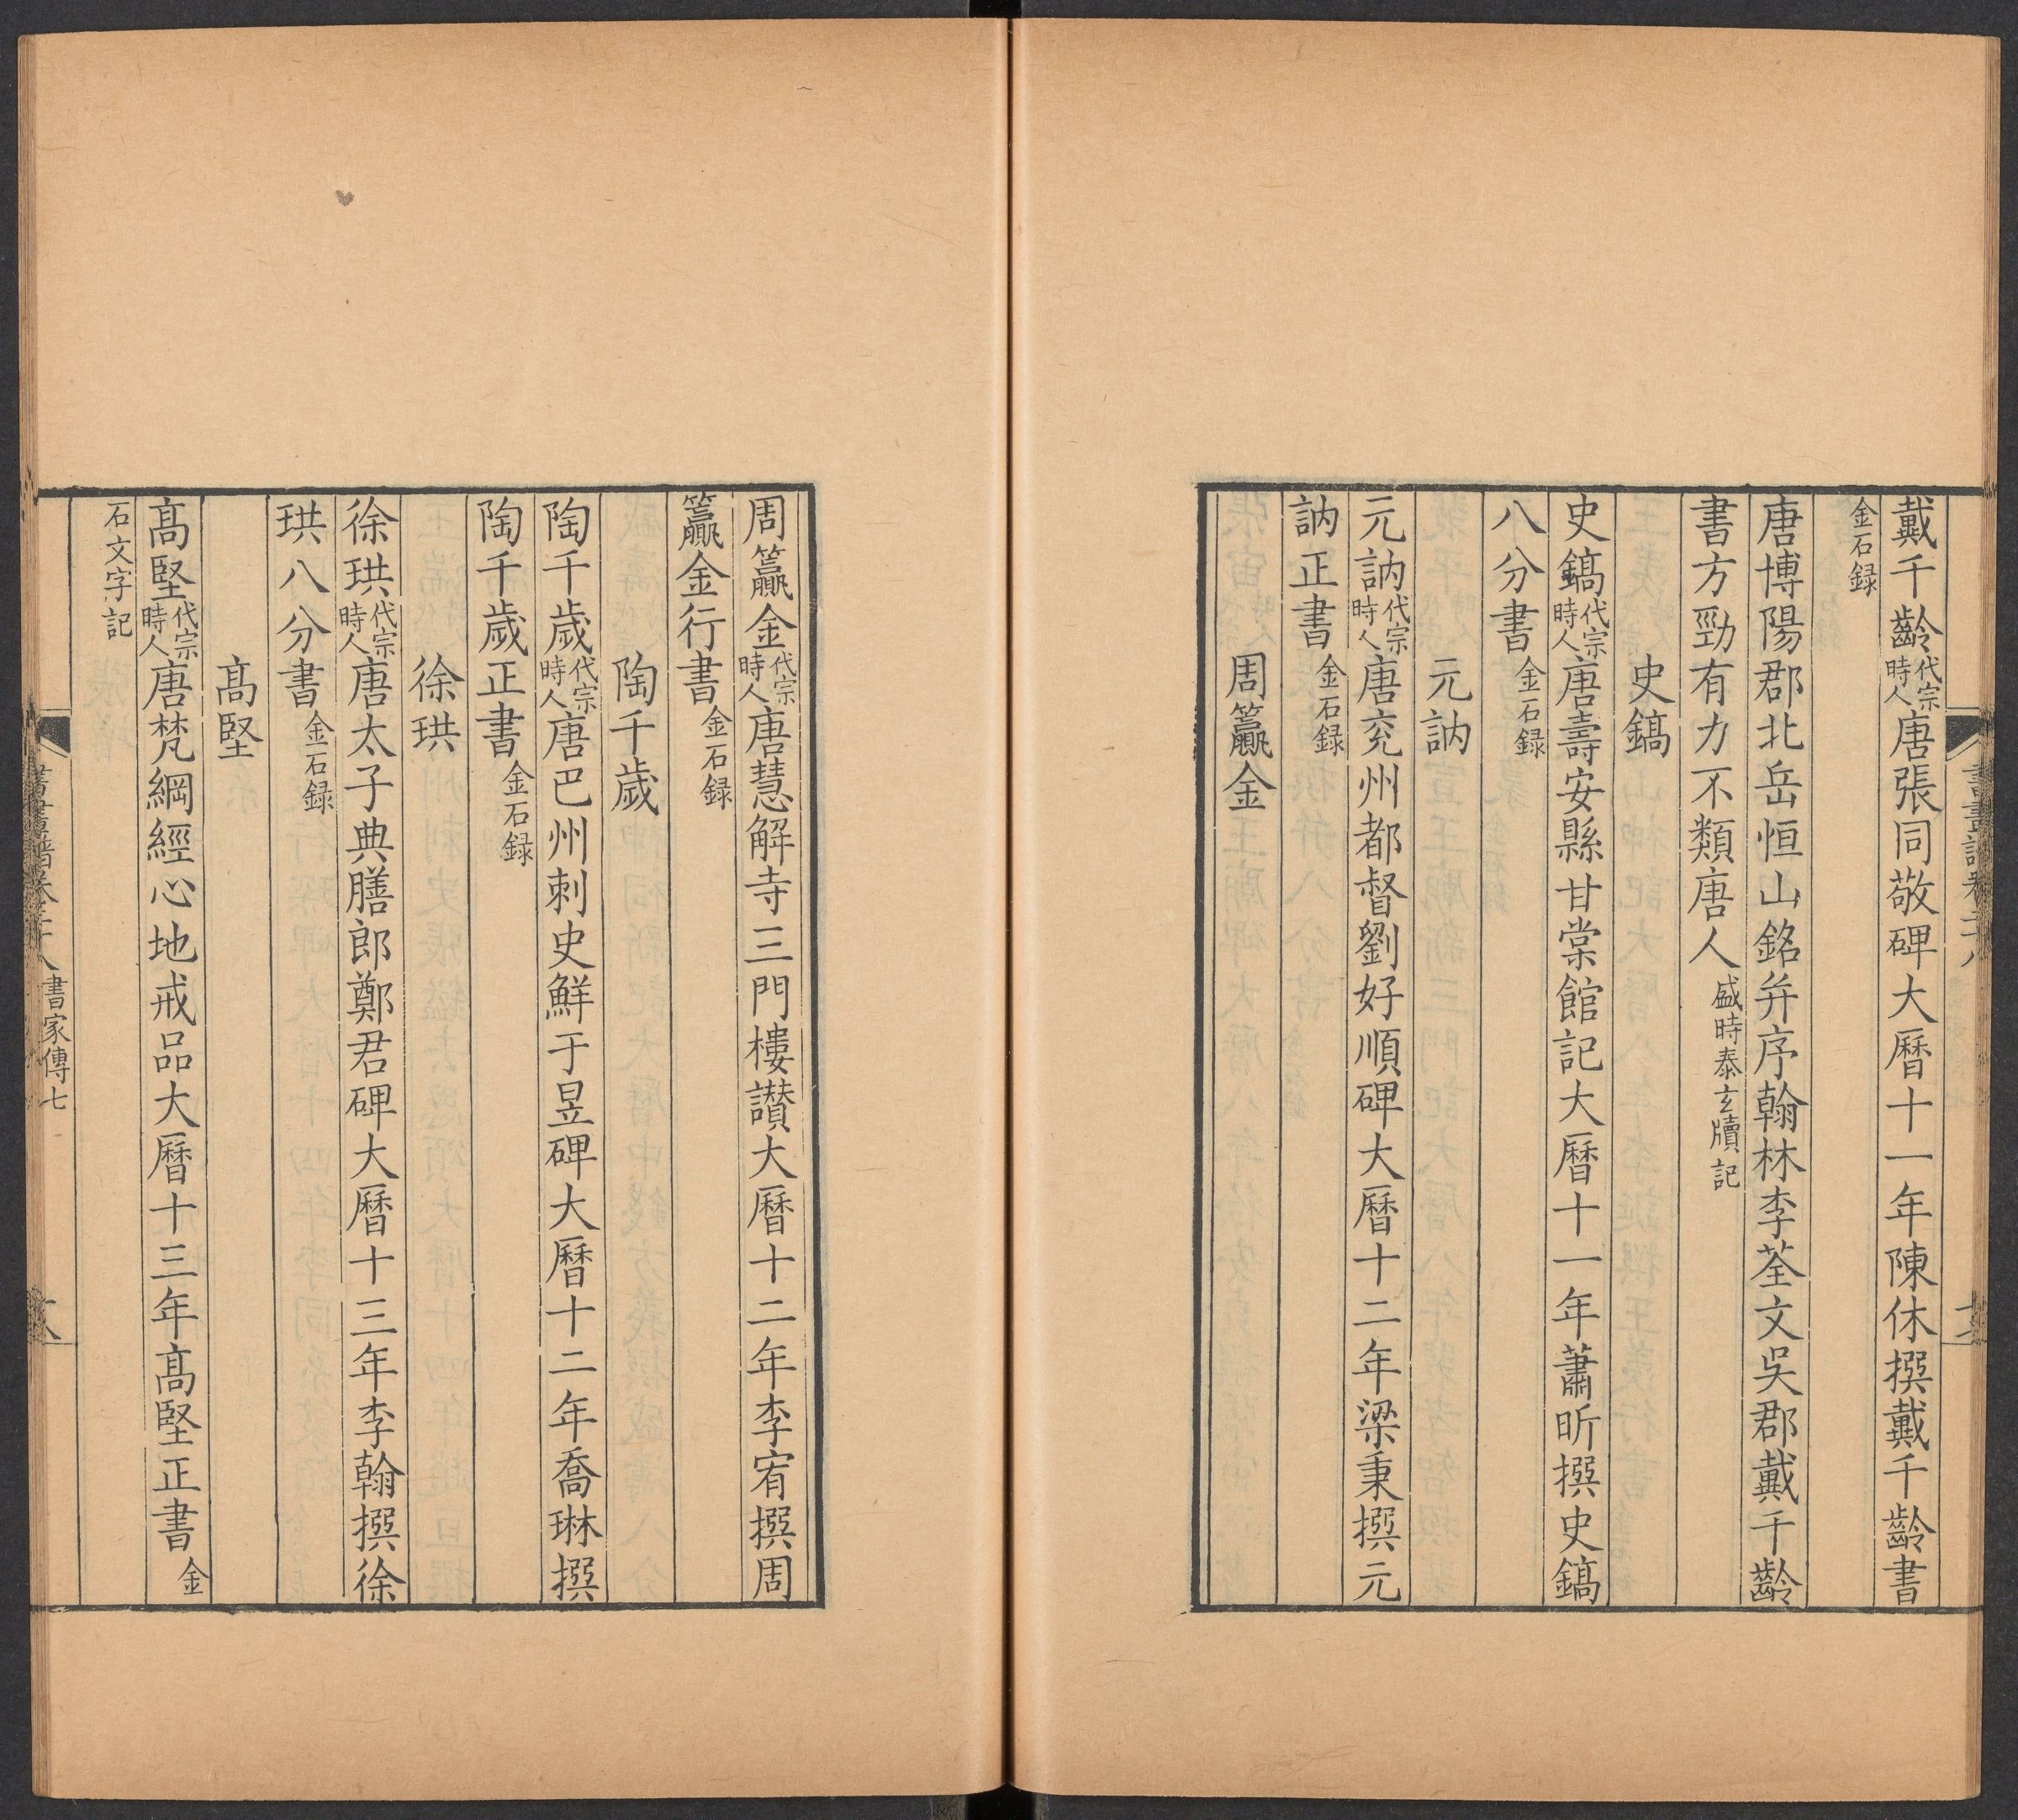 戴千齡代宗時人唐張同敬碑大曆十一年陳休撰戴千齡書
金石録
唐博陽郡北岳恒山銘并序翰林李荃文吳郡戴千齡
書方勁有力不類唐人盛時泰玄牘記
史鎬
史鎬代宗時人唐壽安縣甘棠館記大曆十一年蕭昕撰史鎬
八分書金石録
元訥
元訥代宗時人唐兖州都督劉好順碑大曆十二年梁秉撰元
訥正書金石録
周籯金
周籯金代宗時人唐慧解寺三門樓讃大曆十二年李宥撰周
籯金行書金石録
陶千歲
陶千歲代宗時人唐巴州刺史鮮于昱碑大曆十二年喬琳撰
陶千歲正書金石録
徐珙
徐珙代宗時人唐太子典膳郎鄭君碑大曆十三年李翰撰徐
珙八分書金石録
髙堅
髙堅代宗時人唐梵綱經心地戒品大曆十三年髙堅正書金
石文字記
書家傳七